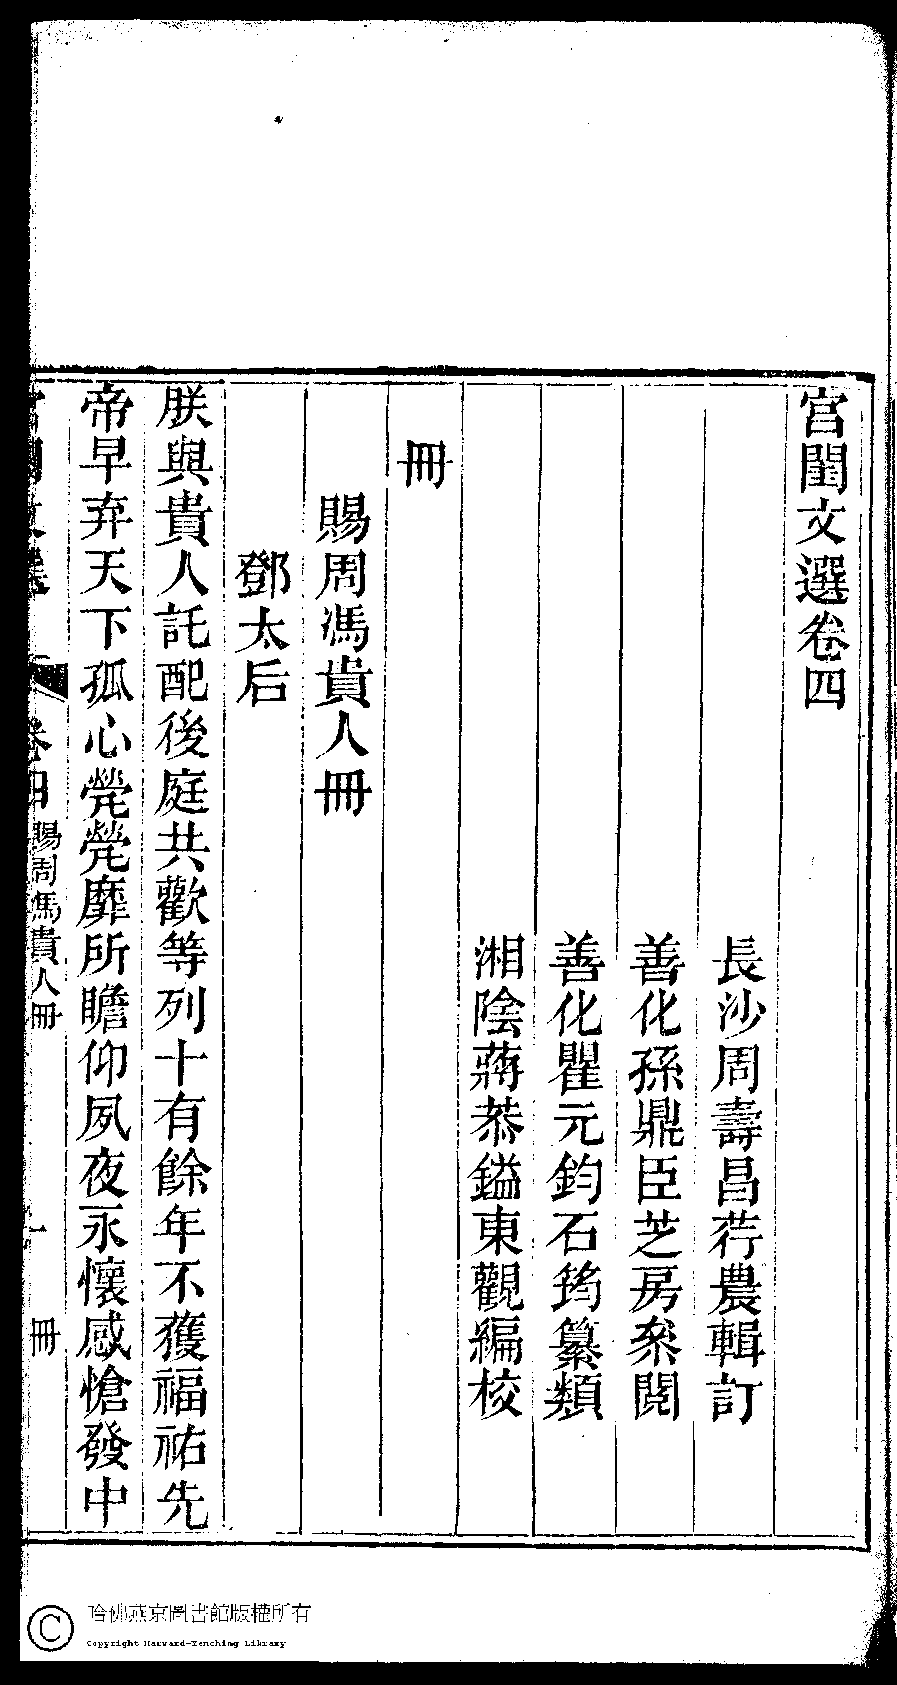 宮閨文選卷四
長沙周壽昌荇農輯訂
善化孫鼎臣芝房叅閱
善化瞿元鈞石筠纂類
湘陰蔣恭鎰東觀編校
冊
賜周馮貴人冊
鄧太后
朕與貴人託配後庭共歡等列十有餘年不獲福祐先
帝早弃天下孤心煢煢靡所瞻仰夙夜永懷感愴發中
宮閨文選 卷四 賜周馮貴人冊 一 冊
哈佛燕京圖書館版權所有
Copyright Harvard-Yenching Library